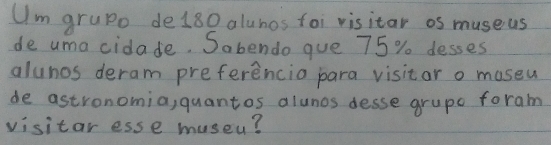 Um grupo de 180 alunos foi visitar os museus
de uma cidade. Sabendo que 75% desses
alunos deram preferência para visitar o museu
de astronomia, quantos alunos desse grupo foram
visitar esse museu?